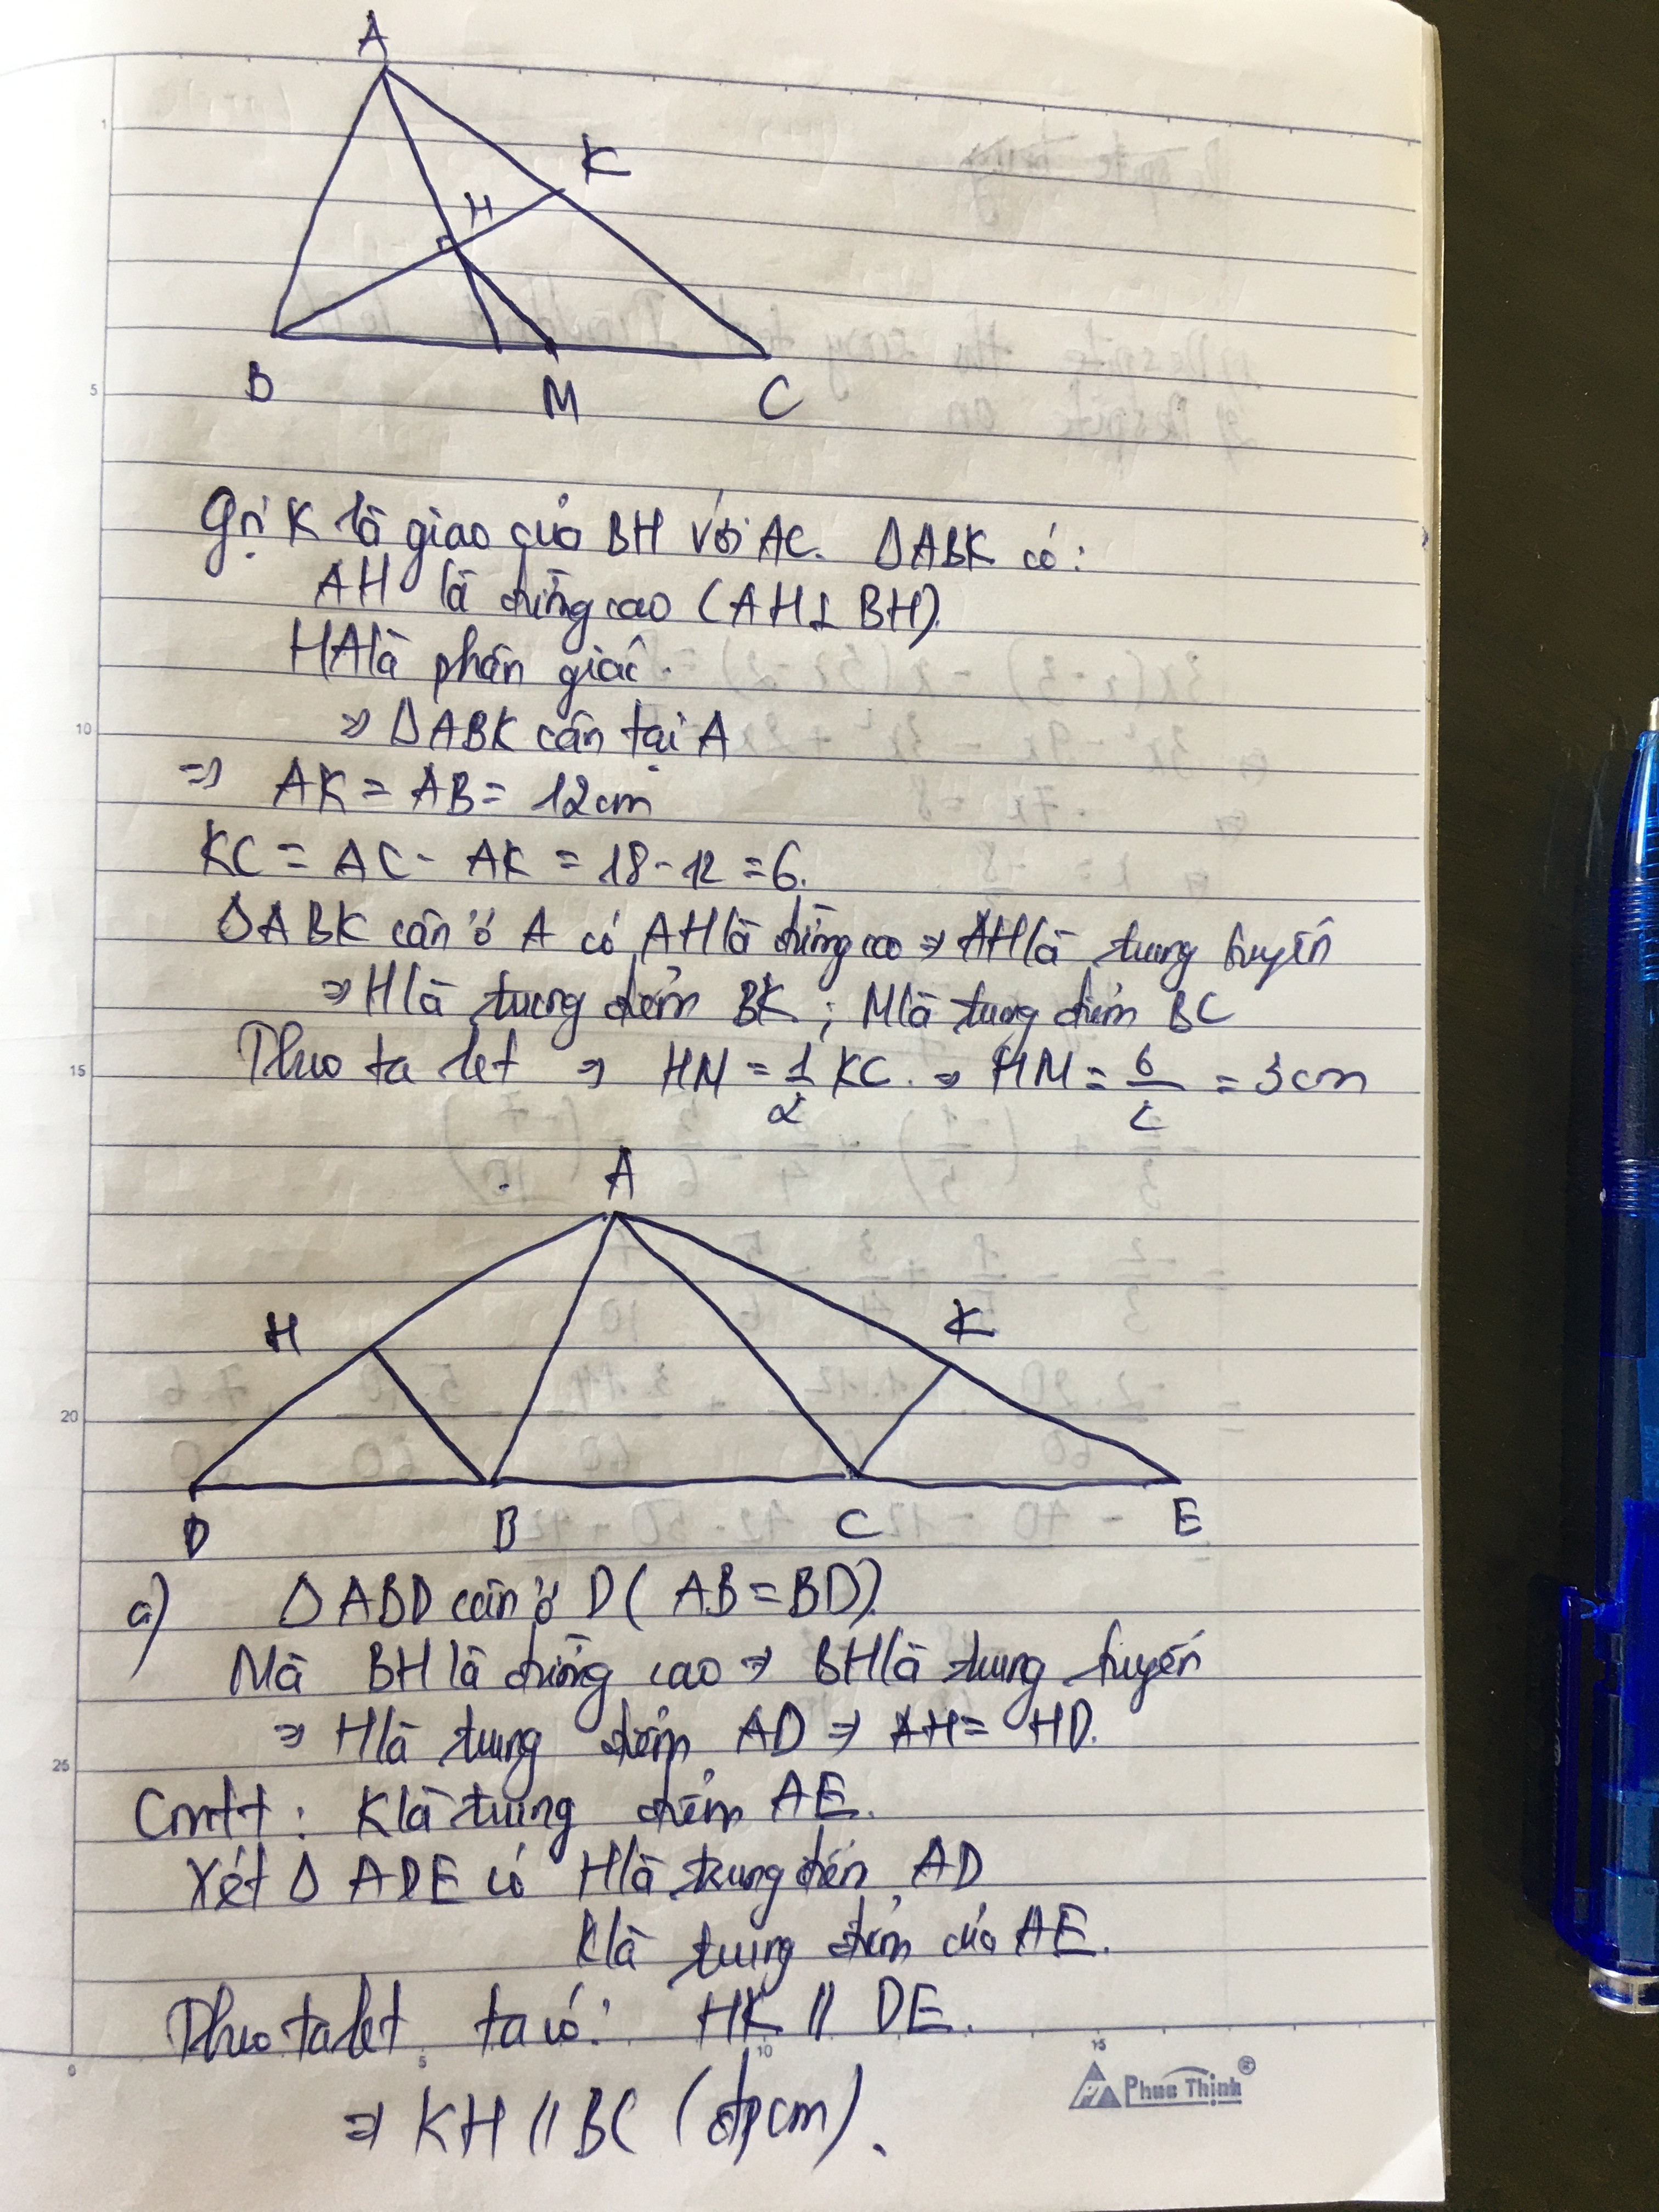 A
K
H
B M C
Gọi K là giao của BH với AC. ΔABK có:
AH là đường cao (AH⊥BH).
HA là phân giác.
⇒ ΔABK cân tại A
⇒ AK = AB = 12cm
KC = AC - AK = 18-12 = 6.
ΔABK cân ở A có AH là đường cao ⇒ AH là trung tuyến
⇒ H là trung điểm BK ; M là trung điểm BC
Theo ta let ⇒ HM = 1/2 KC. ⇒ HM = 6/2 = 3cm
A
H K
D B C E
a) ΔABD cân ở D (AB=BD).
Mà BH là đường cao ⇒ BH là trung tuyến
⇒ H là trung điểm AD ⇒ AH = HD.
Cmtt: K là trung điểm AE.
Xét Δ ADE có H là trung điểm AD
K là trung điểm của AE.
Theo talet ta có: HK // DE.
⇒ KH // BC (đpcm).
1
5
10
15
20
25
0 5 10 15
Phuc Thinh ®